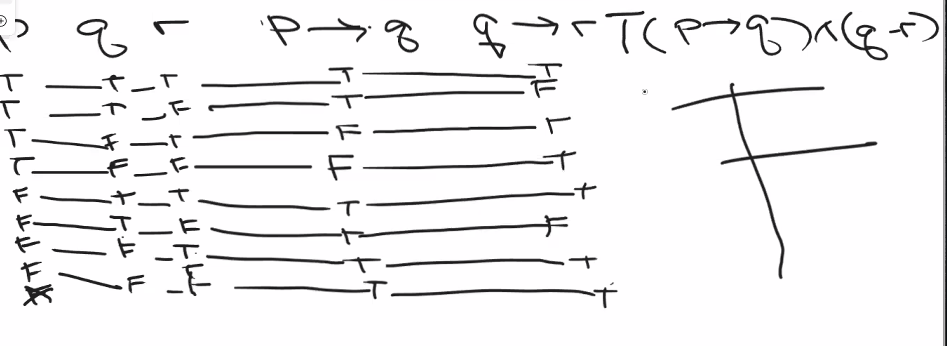 p q r p → q q → r T(p → q) ∧ (q → r)
T T T T T
T T F T F
T F T F T
T F F F T
F T T T T
F T F T F
F F T T T
F F F T T